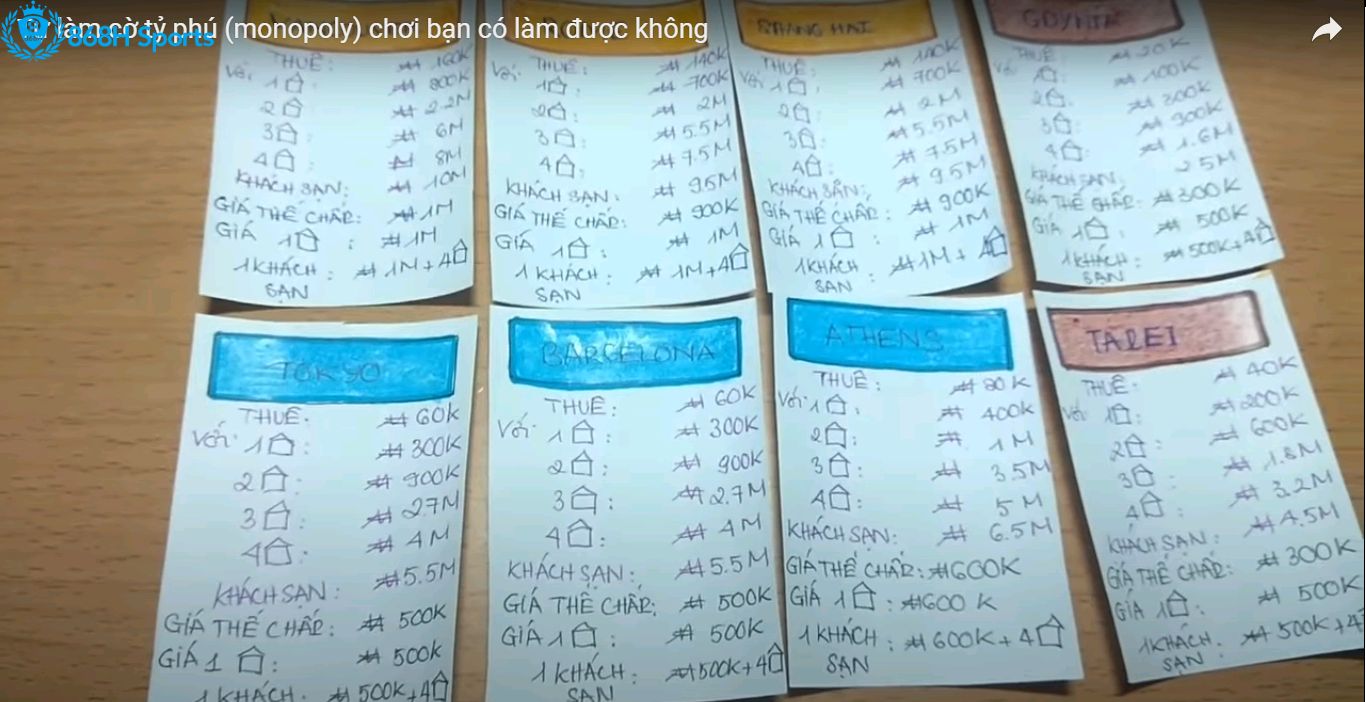 làm cờ tỷ phú (monopoly) chơi bạn có làm được không
868H Sports
THUÊ: 160K
Với 1 : 800K
2 : 2.2M
3 : 6M
4 : 8M
KHÁCH SẠN: 10M
GIÁ THẾ CHẤP: 1M
GIÁ 1 : 1M
1 KHÁCH SẠN : 1M + 4
THUÊ: 140K
Với 1 : 700K
2 : 2M
3 : 5.5M
4 : 7.5M
KHÁCH SẠN: 9.5M
GIÁ THẾ CHẤP: 900K
GIÁ 1 : 1M
1 KHÁCH SẠN : 1M + 4
THƯỢNG HẢI
THUÊ: 140K
Với 1 : 700K
2 : 2M
3 : 5.5M
4 : 7.5M
KHÁCH SẠN: 9.5M
GIÁ THẾ CHẤP: 900K
GIÁ 1 : 1M
1 KHÁCH SẠN : 1M + 4
GDYNIA
THUÊ: 20K
Với 1 : 100K
2 : 300K
3 : 900K
4 : 1.6M
KHÁCH SẠN: 2.5M
GIÁ THẾ CHẤP: 300K
GIÁ 1 : 500K
1 KHÁCH SẠN : 500K + 4
TOKYO
THUÊ: 60K
Với 1 : 300K
2 : 900K
3 : 2.7M
4 : 4M
KHÁCH SẠN: 5.5M
GIÁ THẾ CHẤP: 500K
GIÁ 1 : 500K
1 KHÁCH: 500K + 4
BARCELONA
THUÊ: 60K
Với 1 : 300K
2 : 900K
3 : 2.7M
4 : 4M
KHÁCH SẠN: 5.5M
GIÁ THẾ CHẤP: 500K
GIÁ 1 : 500K
1 KHÁCH SẠN : 500K + 4
ATHENS
THUÊ: 80K
Với 1 : 400K
2 : 1M
3 : 3.5M
4 : 5M
KHÁCH SẠN: 6.5M
GIÁ THẾ CHẤP: 600K
GIÁ 1 : 600K
1 KHÁCH SẠN : 600K + 4
TAIPEI
THUÊ: 40K
Với 1 : 200K
2 : 600K
3 : 1.8M
4 : 3.2M
KHÁCH SẠN: 4.5M
GIÁ THẾ CHẤP: 300K
GIÁ 1 : 500K
1 KHÁCH SẠN : 500K + 4